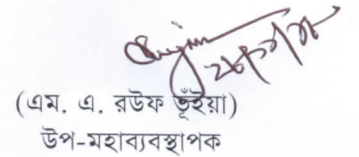 (এম. এ. রউফ ভূঁইয়া)
উপ-মহাব্যবস্থাপক